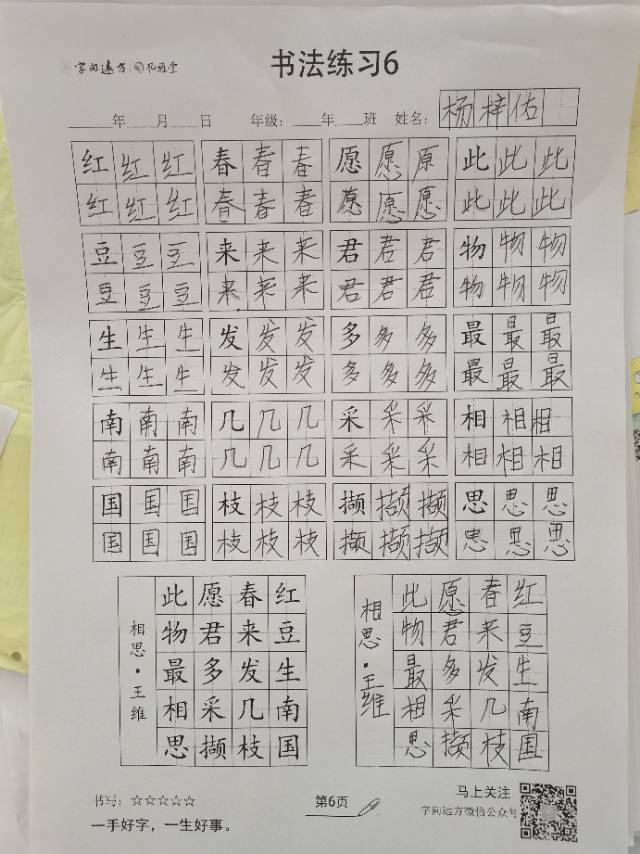 字间远方
书法练习6
____年____月____日 年级：____年____班 姓名：杨梓佑
红红红 春春春 愿愿原 此此此
红红红 春春春 愿愿愿 此此此
豆豆豆 来来来 君君君 物物物
豆豆豆 来来来 君君君 物物物
生生生 发发发 多多多 最最最
生生生 发发发 多多多 最最最
南南南 几几几 采采采 相相相
南南南 几几几 采采采 相相相
国国国 枝枝枝 撷撷撷 思思思
国国国 枝枝枝 撷撷撷 思思思
红豆生南国
春来发几枝
愿君多采撷
此物最相思
相思·王维
红豆生南国
春来发几枝
愿君多采撷
此物最相思
相思·王维
书写：☆☆☆☆☆
一手好字，一生好事。
第6页
马上关注
字间远方微信公众号